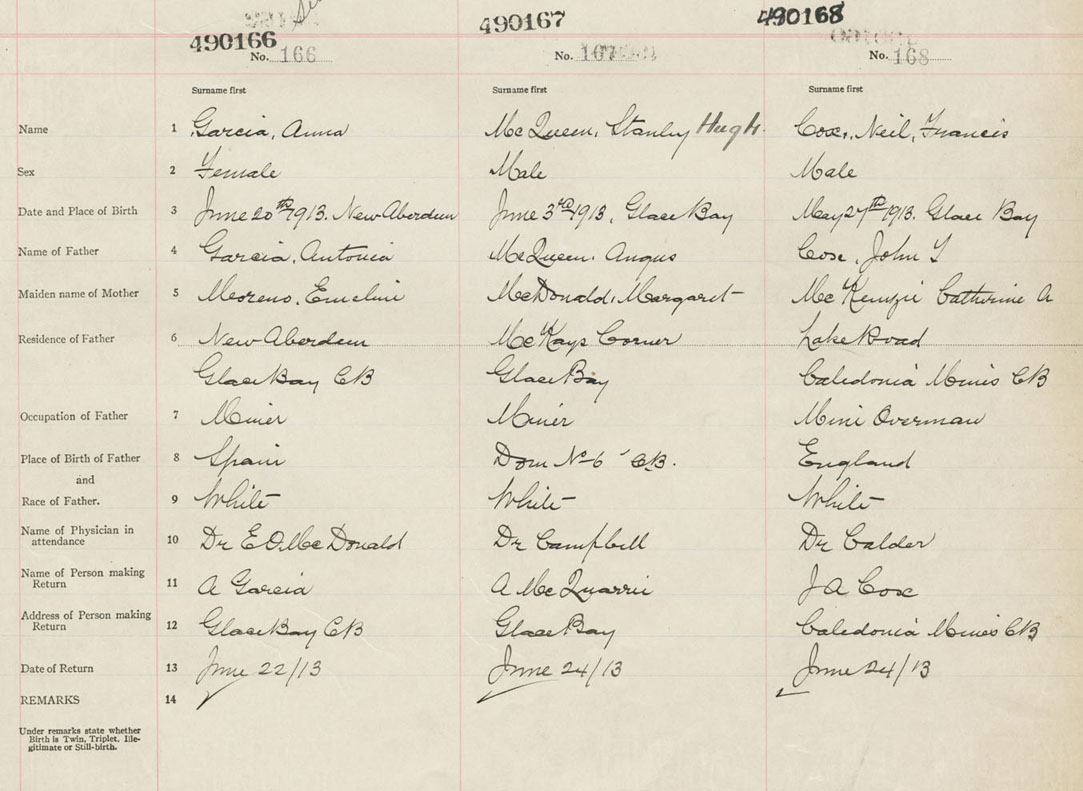 490166 490167 490168
No. 166 No. 167 No. 168
Surname first Surname first Surname first
Name 1 Garcia, Anna McQueen, Stanley Hugh. Cox, Neil, Francis
Sex 2 Female Male Male
Date and Place of Birth 3 June 20th 1913. New Aberdeen June 3rd 1913, Glace Bay May 27th 1913. Glace Bay
Name of Father 4 Garcia, Antonia McQueen. Angus Cox, John
Maiden name of Mother 5 Moreno, Emeline McDonald, Margaret McKenzie Catherine A
Residence of Father 6 New Aberdeen McKays Corner Lake Road
Glace Bay CB Glace Bay Caledonia Mines CB
Occupation of Father 7 Miner Miner Mine Overman
Place of Birth of Father 8 Spain Dom No 6 CB. England
and
Race of Father. 9 White White White
Name of Physician in
attendance 10 Dr E.O. McDonald Dr Campbell Dr Calder
Name of Person making
Return 11 A Garcia A McQuarrie J A Cox
Address of Person making
Return 12 Glace Bay CB Glace Bay Caledonia Mines CB
Date of Return 13 June 22/13 June 24/13 June 24/13
REMARKS 14
Under remarks state whether
Birth is Twin, Triplet, Ille-
gitimate or Still-birth.